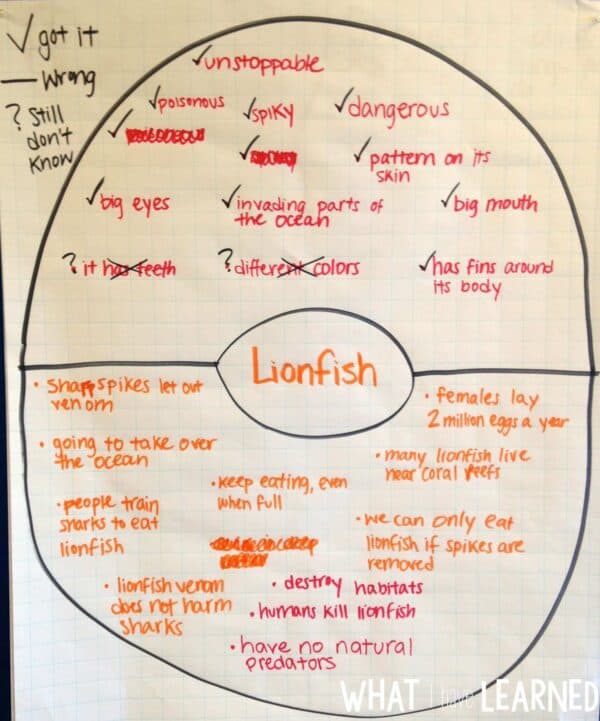 ✓ got it
— Wrong
? Still
don't
know
✓unstoppable
✓poisonous
✓spiky
✓dangerous
✓pattern on its
skin
✓big eyes
✓invading parts of
the ocean
✓big mouth
? it has teeth
? different colors
✓has fins around
its body
Lionfish
• Sharp spikes let out
venom
• going to take over
the ocean
• people train
sharks to eat
lionfish
• lionfish venom
does not harm
sharks
• keep eating, even
when full
• destroy habitats
• humans kill lionfish
• have no natural
predators
• females lay
2 million eggs a year
• many lionfish live
near coral reefs
• we can only eat
lionfish if spikes are
removed
WHAT I have LEARNED